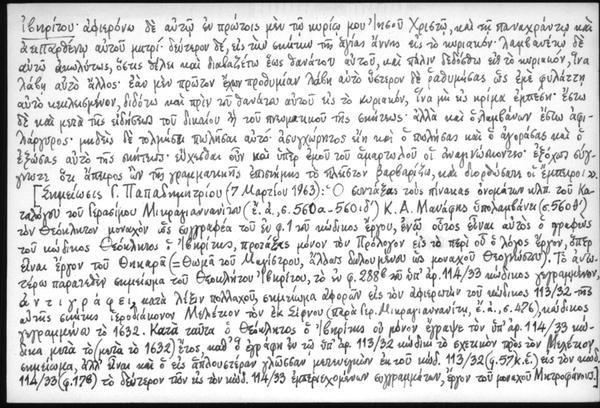 Ἰβηρίτου· ἀφιερόνω δὲ αὐτῷ ἐν πρώτοις μὲν τῷ κυρίῳ μου Ἰησοῦ Χριστῷ, καὶ τῇ παναχράντῳ καὶ
ἀειπαρθένῳ αὐτοῦ μητρί· δεύτερον δέ, εἰς τὴν σκήτην τῆς ἁγίας ἄννης εἰς τὸ κυριακόν· λαμβανέτω δὲ
αὐτῷ ἀκωλύτως, ὅστις θέλει καὶ διαβαζέτω ἕως θανάτου αὐτοῦ, καὶ πάλιν εἰς τὸ κυριακόν, ἵνα
λάβῃ αὐτὸ ἄλλος· ἐὰν μὲν πρῶτον ἔχων προθυμίαν λάβῃ αὐτὸ ὕστερον δὲ ῥαθυμήσας φυλάττῃ
αὐτὸ κεκλεισμένον, διδότω καὶ πρὶν τοῦ θανάτου αὐτοῦ εἰς τὸ κυριακόν, ἵνα μὴ εἰς κρίμα ἐμπέσῃ· ἔστω
δὲ καὶ μετὰ τῆς εἰδήσεως τοῦ δικαίου ἢ τοῦ πνευματικοῦ τῆς σκήτεως· ἀλλὰ καὶ ὁ λαμβάνων ἔστω ἀφι-
λάργυρος· μηδεὶς δὲ τολμήσει πωλῆσαι αὐτό· ἀσυγχώρητος εἴη καὶ ὁ πωλήσας καὶ ὁ ἀγοράσας καὶ ὁ
ἐξώσας αὐτὸ τῆς σκήτεως· εὔχεσθαι οὖν καὶ ὑπὲρ ἐμοῦ τοῦ ἁμαρτωλοῦ οἱ ἀναγινώσκοντες· ἐξόχως σύγ-
γνωτε ὅτι ἄπειρος ὢν τῆς γραμματικῆς ἐπιστήμης τὸ πλεῖστον βαρβαρίζω, καὶ διορθώσατε οἱ ἔμπειροι».
[Σημείωσις Γ. Παπαδημητρίου (7 Μαρτίου 1963): Ὁ συντάξας τοὺς πίνακας ὀνομάτων κλπ. τοῦ Κα-
ταλόγου τοῦ Γερασίμου Μικραγιαννανίτου (ἔ.ἀ., σ. 560α-561δ΄) Κ. Α. Μανάφης ὑπολαμβάνει (σ. 560θ΄)
τὸν Θεόκλητον μοναχὸν ὡς συγγραφέα τοῦ ἐν φ. 1 τοῦ κώδικος ἔργου, ἐνῷ οὗτος εἶναι αὐτὸς ὁ γραφεὺς
τοῦ κώδικος Θεόκλητος ὁ Ἰβηρίτης, προτάξας μόνον τὸν Πρόλογον εἰς τὸ περὶ οὗ ὁ λόγος ἔργον, ὅπερ
εἶναι ἔργον τοῦ Θηκαρᾶ (= Θωμᾶ τοῦ Μαγίστρου, ἄλλως δηλουμένου ὡς μοναχοῦ Θεοδούλου). Τὸ ἀνω-
τέρω παρατεθὲν σημείωμα τοῦ Θεοκλήτου Ἰβηρίτου, τὸ ἐν φ. 288β τοῦ ὑπ' ἀρ. 114/33 κώδικος γεγραμμένον,
ἀντιγράφει, κατὰ λέξιν πολλαχοῦ, σημείωμα ἀφορῶν εἰς τὸν ἀφιερωτὴν τοῦ κώδικος 113/32 τῆς
αὐτῆς σκήτης ἱεροδιάκονον Μελέτιον τὸν ἐκ Σίφνου (παρὰ Γερ. Μικραγιαννανίτῃ, ἔ.ἀ., σ. 476), κώδικος
γεγραμμένου τὸ 1632. Κατὰ ταῦτα ὁ Θεόκλητος ὁ Ἰβηρίτης οὐ μόνον ἔγραψε τὸν ὑπ' ἀρ. 114/33 κώ-
δικα μετὰ τὸ (μετὰ τὸ 1632) ἔτος, καθ' ὃ ἐγράφη ἐν τῷ ὑπ' ἀρ. 113/32 κώδικι τὸ σχετικὸν πρὸς τὸν Μελέτιον
σημείωμα, ἀλλ' εἶναι καὶ ὁ εἰς ἁπλουστέραν γλῶσσαν μετενεγκὼν ἐκ τοῦ κώδ. 113/32 (φ. 57κ.ἑ.) εἰς τὸν κώδ.
114/33 (φ. 178) τὸ δεύτερον τῶν εἰς τὸν κώδ. 114/33 ἐμπεριεχομένων συγγραμμάτων, ἔργον τοῦ μοναχοῦ Μητροφάνους.]